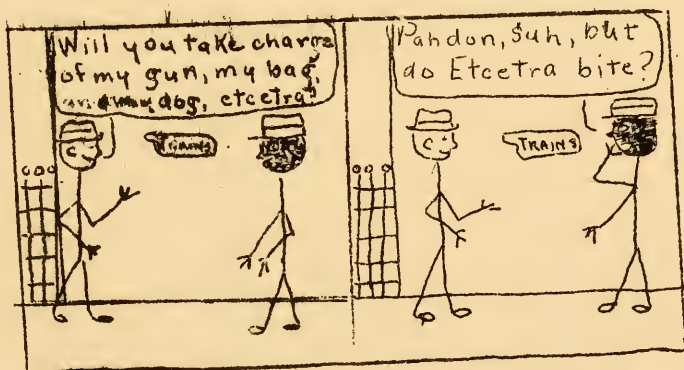 Will you take charge
of my gun, my bag,
and my dog, etcetra?
TRAINS
Pahdon, suh, but
do Etcetra bite?
TRAINS